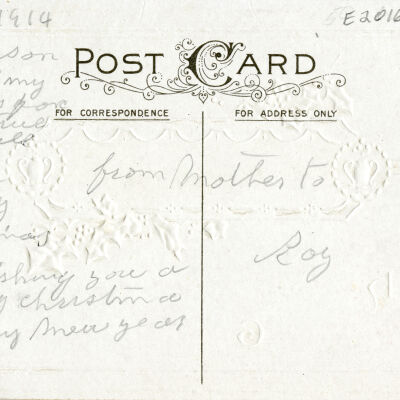 1914
E2016
son
POST CARD
my
FOR CORRESPONDENCE
FOR ADDRESS ONLY
from Mother to
Roy
shing you a
christma
new year